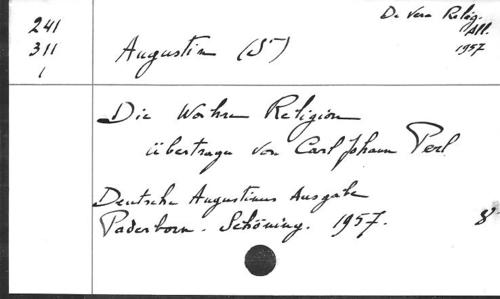 241
311
1
De Vera Relig.
All.
1957
Augustin (St)
Die Wahre Religion
übertragen von Carl Johann Perl
Deutsche Augustinus Ausgabe
Paderborn. Schöning. 1957. 8°